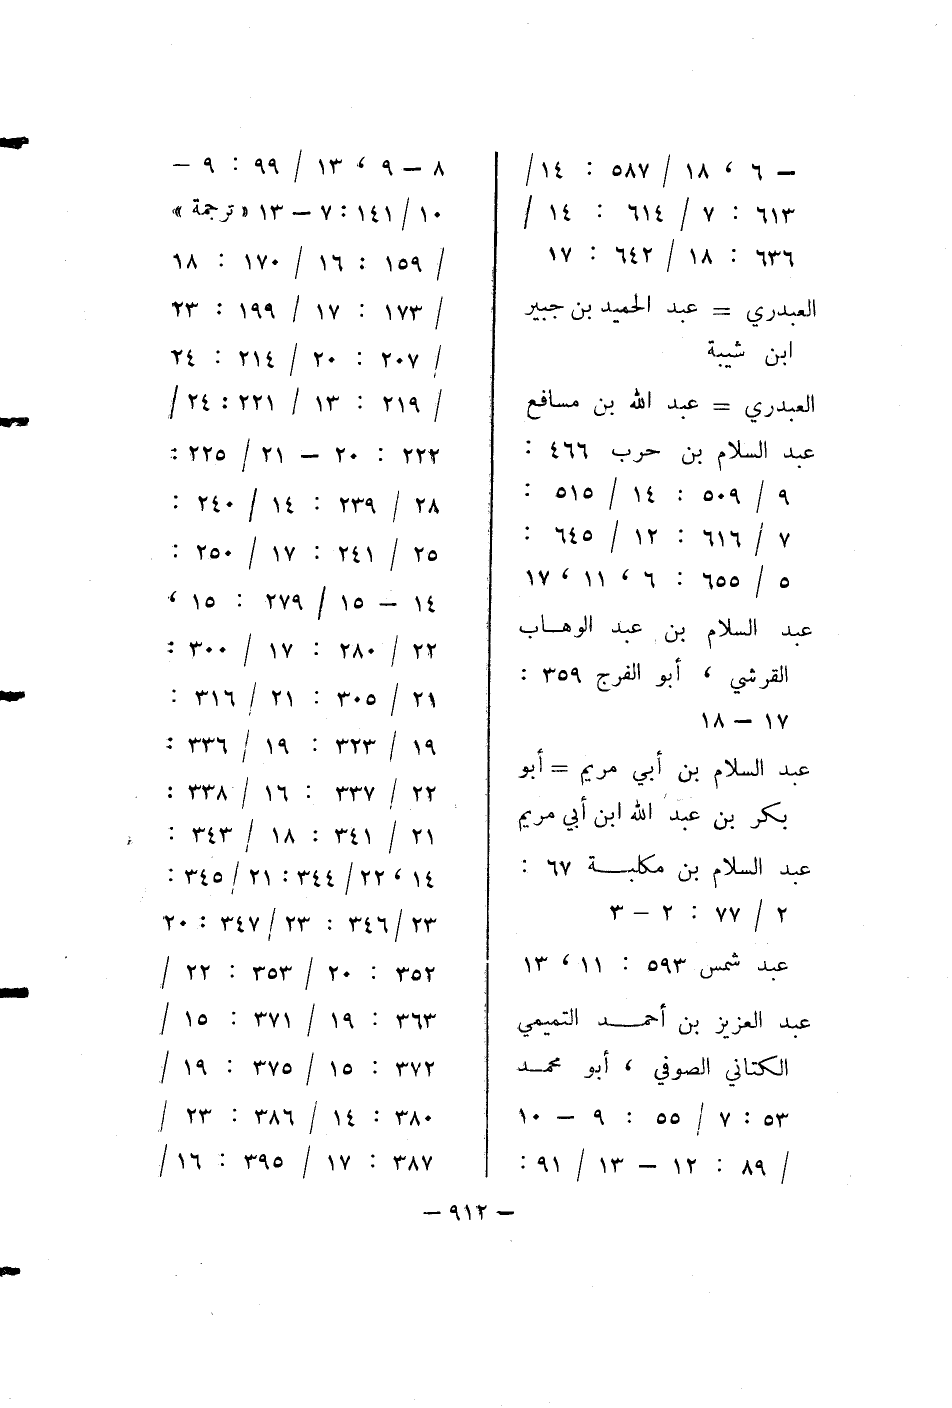 – ٦ ، ١٨ / ٥٨٧ : ١٤/
٦١٣ : ٧ / ٦١٤ : ١٤ /
٦٣٦ : ١٨ / ٦٤٢ : ١٧
العبدري = عبد الحميد بن جبير
ابن شيبة
العبدري = عبد الله بن مسافع
عبد السلام بن حرب ٤٦٦ :
٩ / ٥٠٩ : ١٤ / ٥١٥ :
٧ / ٦١٦ : ١٢ / ٦٤٥ :
٥ / ٦٥٥ : ٦ ، ١١ ، ١٧
عبد السلام بن عبد الوهاب
القرشي ، أبو الفرج ٣٥٩ :
١٧ – ١٨
عبد السلام بن أبي مريم = أبو
بكر بن عبد الله ابن أبي مريم
عبد السلام بن مكلبة ٦٧ :
٢ / ٧٧ : ٢ – ٣
عبد شمس ٥٩٣ : ١١ ، ١٣
عبد العزيز بن أحمد التميمي
الكتاني الصوفي ، أبو محمد
٥٣ : ٧ / ٥٥ : ٩ – ١٠
/ ٨٩ : ١٢ – ١٣ / ٩١ :
٨ – ٩ ، ١٣ / ٩٩ : ٩ –
١٠ / ١٤١ : ٧ – ١٣ « ترجمة »
/ ١٥٩ : ١٦ / ١٧٠ : ١٨
/ ١٧٣ : ١٧ / ١٩٩ : ٢٣
/ ٢٠٧ : ٢٠ / ٢١٤ : ٢٤
/ ٢١٩ : ١٣ / ٢٢١ : ٢٤ /
٢٢٢ : ٢٠ – ٢١ / ٢٢٥ :
٢٨ / ٢٣٩ : ١٤ / ٢٤٠ :
٢٥ / ٢٤١ : ١٧ / ٢٥٠ :
١٤ – ١٥ / ٢٧٩ : ١٥ ،
٢٢ / ٢٨٠ : ١٧ / ٣٠٠ :
٢١ / ٣٠٥ : ٢١ / ٣١٦ :
١٩ / ٣٢٣ : ١٩ / ٣٣٦ :
٢٢ / ٣٣٧ : ١٦ / ٣٣٨ :
٢١ / ٣٤١ : ١٨ / ٣٤٣ :
١٤ ، ٢٢ / ٣٤٤ : ٢١ / ٣٤٥ :
٢٣ / ٣٤٦ : ٢٣ / ٣٤٧ : ٢٠
٣٥٢ : ٢٠ / ٣٥٣ : ٢٢ /
٣٦٣ : ١٩ / ٣٧١ : ١٥ /
٣٧٢ : ١٥ / ٣٧٥ : ١٩ /
٣٨٠ : ١٤ / ٣٨٦ : ٢٣ /
٣٨٧ : ١٧ / ٣٩٥ : ١٦ /
– ٩١٢ –